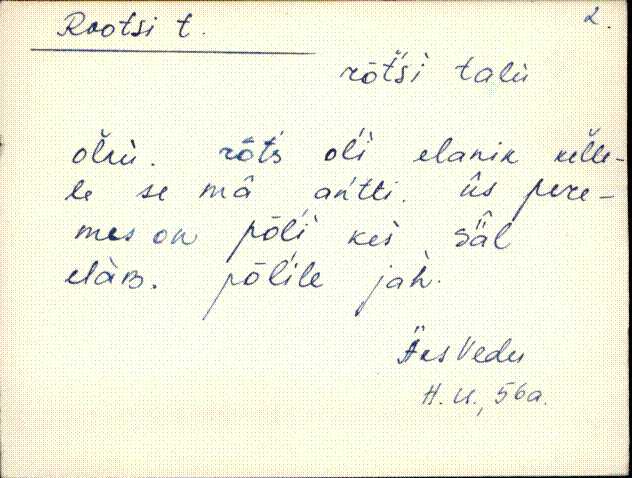 Rootsi t. 2.
rōt́śi talu
oĺlu. rōt́s oĺi elanik kelle-
le se mā antti. üs pere-
mes on pōĺi kes säl
elàB. pōĺile jah.
Äks Vedu
H. U., 56a.